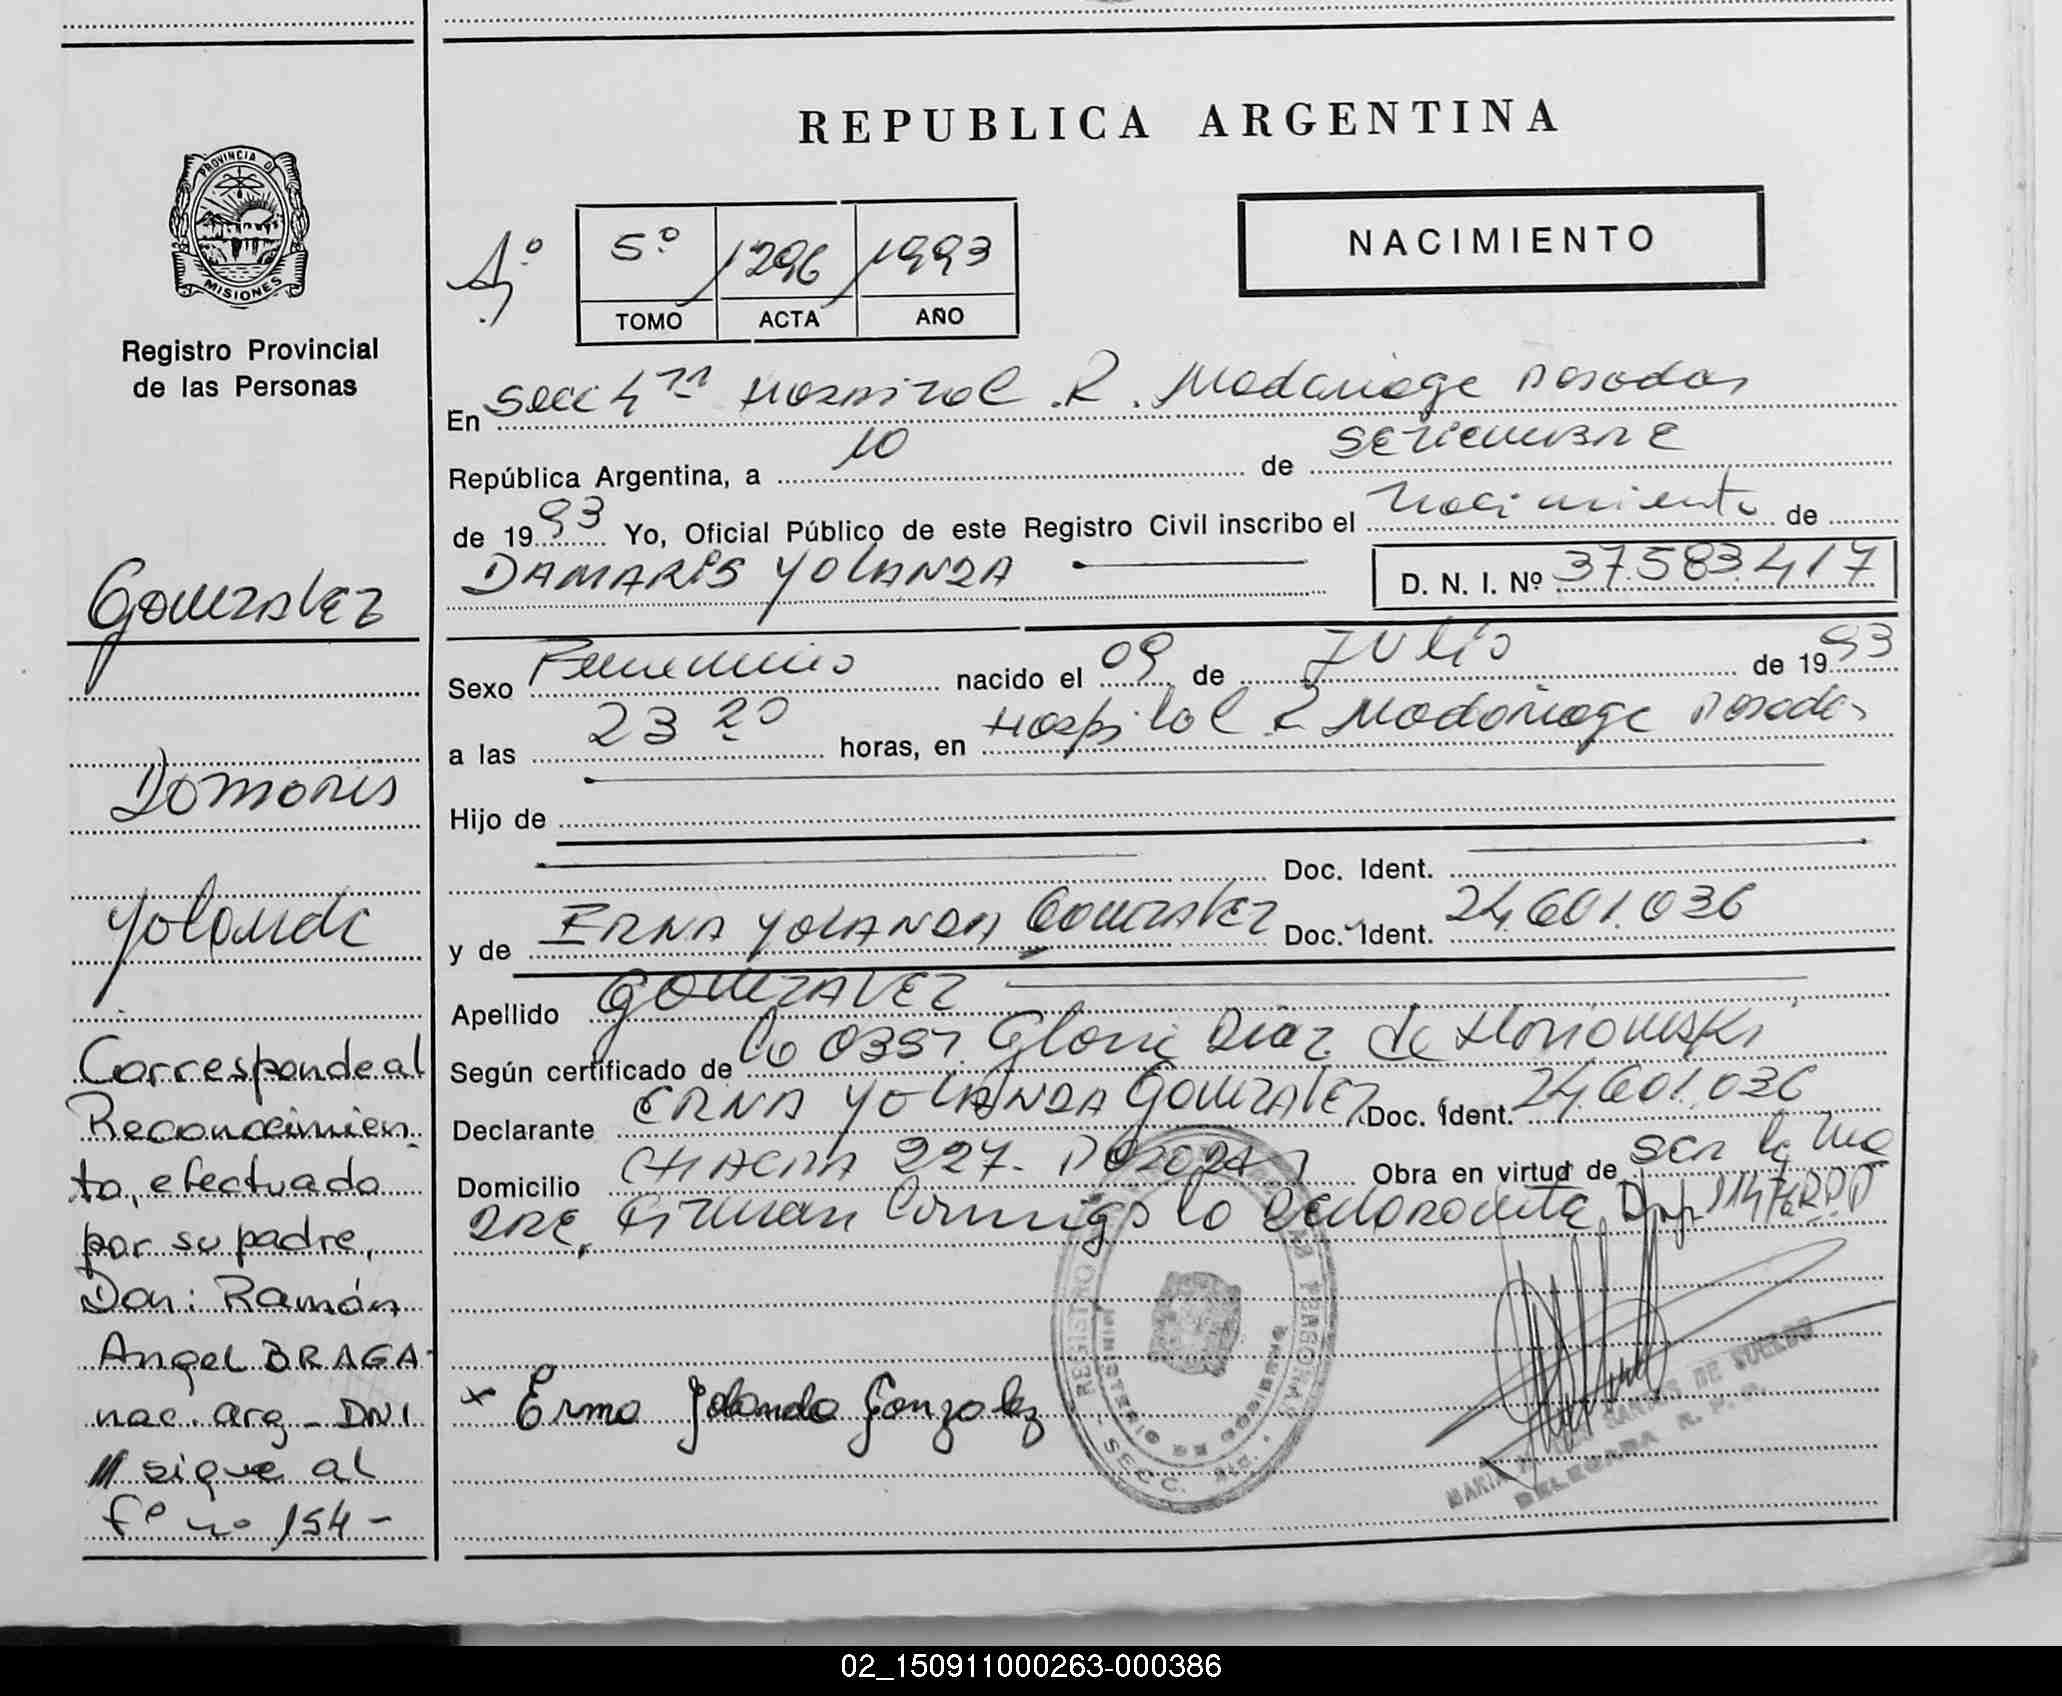 REPUBLICA ARGENTINA
PROVINCIA DE
MISIONES
Registro Provincial
de las Personas
5º 1296 1993
TOMO ACTA AÑO
NACIMIENTO
En Secc 4ta Hospital R. Madariaga Posadas
República Argentina, a 10 de SETIEMBRE
de 1993 Yo, Oficial Público de este Registro Civil inscribo el Nacimiento de
DAMARIS YOLANDA D. N. I. Nº 37.583.417
Sexo Femenino nacido el 09 de JULIO de 1993
a las 23 20 horas, en Hospital R Madariaga Posadas
Hijo de
Doc. Ident.
y de ERNA YOLANDA GONZALEZ Doc. Ident. 24.601.036
Apellido GONZALEZ
Según certificado de la 0357 Gloria Diaz de
Declarante ERNA YOLANDA GONZALEZ Doc. Ident. 24.601.036
Domicilio CHACRA 227. POSADAS Obra en virtud de ser la ma
DRE, Firman Conmigo la Declarante,
x Erma Yolanda Gonzalez
REGISTRO
MINISTERIO DE GOBIERNO
SECC.
DELEGADA R. P. P.
Gonzalez
Damaris
Yolanda
Corresponde al
Reconocimien
to, efectuado
por su padre,
Don: Ramón
Angel BRAGA-
nac. arg - DNI
// sigue al
fº nº 154 -
02_150911000263-000386